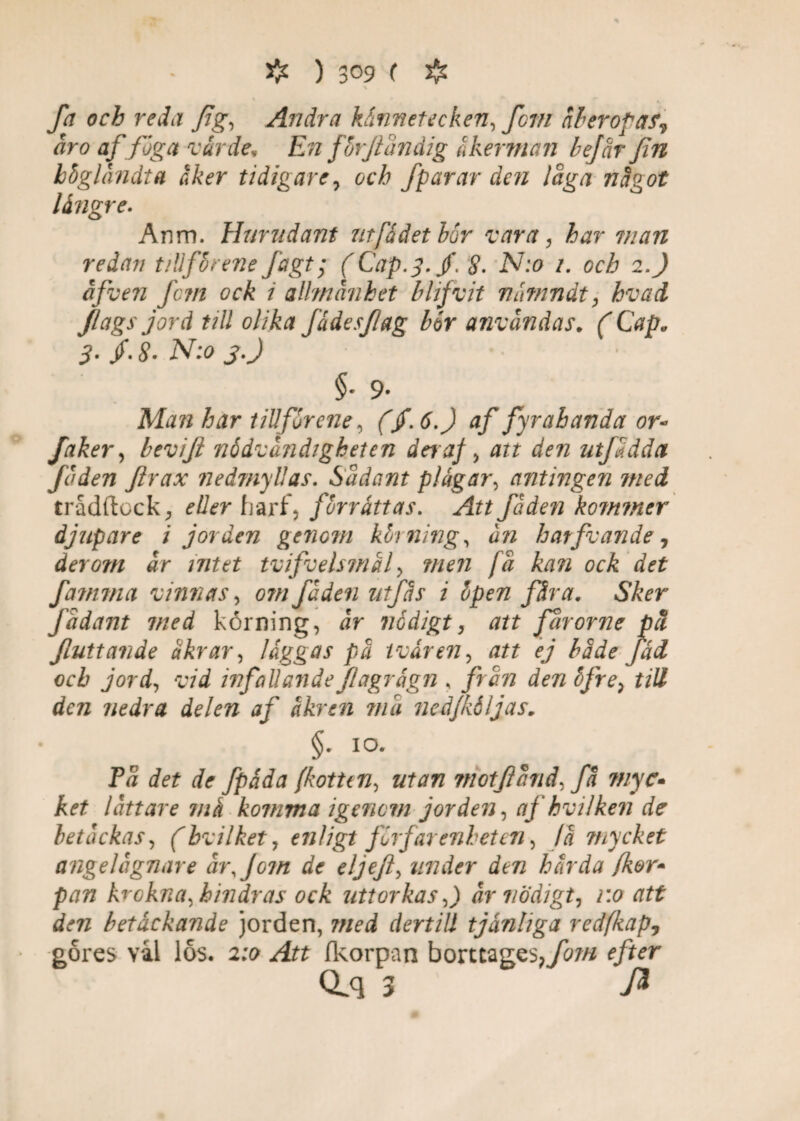 ☆ ) 309 ( ☆
ſa och reda ſig, Andra kånnetecken, ſom åberopas,
åro af föga vårde. En förſtåndig åkerman beſår ſin
höglåndta åker tidigare, och ſparar den låga något
långre.
Anm. Hurudant utſådet bör vara, har man
redan tillförene ſagt; (Cap. 3. §. 8. N:o 1. och 2.)
åfven ſom ock i allmånhet blifvit nåmndt, hvad
ſlags jord till olika ſådesſlag bör anvåndas. (Cap.
3. §. 8. N:o 3.)
§. 9.
Man har tillförene, (§. 6.) af fyrahanda or-
ſaker, beviſt nödvåndigheten deraf, att den utſådda
ſåden ſtrax nedmyllas. Sådant plågar, antingen med
trådſtock, eller harf, förråttas. Att ſåden kommer
djupare i jorden genom körning, ån harfvande,
derom år intet tvifvelsmål, men ſå kan ock det
ſamma vinnas, om ſåden utſås i öpen fåra. Sker
ſådant med körning, år nödigt, att fårorne på
ſluttande åkrar, låggas på tvåren, att ej både ſåd
och jord, vid infallande ſlagrågn, från den öfre, till
den nedra delen af åkren må nedſköljas.
§. 10.
På det de ſpåda ſkotten, utan motſtånd, ſå myc-
ket låttare må komma igenom jorden, af hvilken de
betåckas, (hvilket, enligt förfarenheten, ſå mycket
angelågnare år, ſom de eljeſt, under den hårda ſkor-
pan krokna, hindras ock uttorkas,) år nödigt, 1:o att
den betåckande jorden, med dertill tjånliga redſkap,
göres vål lös. 2:o Att ſkorpan borttages, ſom efter
Qq 3 ſå